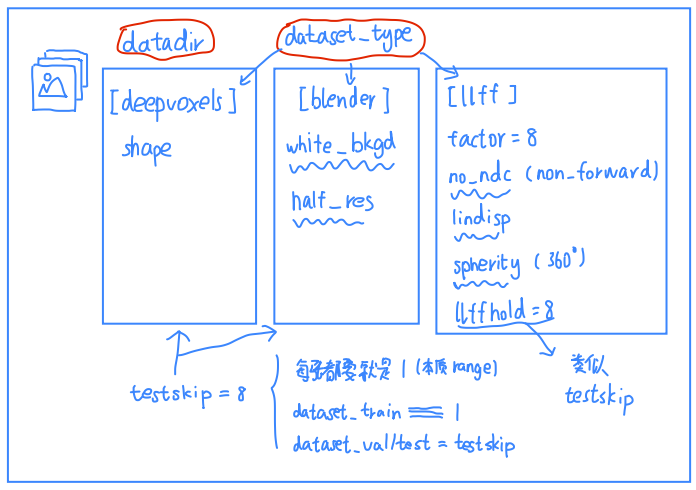 datadir
dataset_type
[deepvoxels]
shape
[blender]
white_bkgd
half_res
[llff]
factor = 8
no_ndc (non_forward)
lindisp
spherity (360°)
llffhold = 8
类似
testskip
testskip = 8
每张都要就是 1 (本质 range)
dataset_train 1
dataset_val/test = testskip